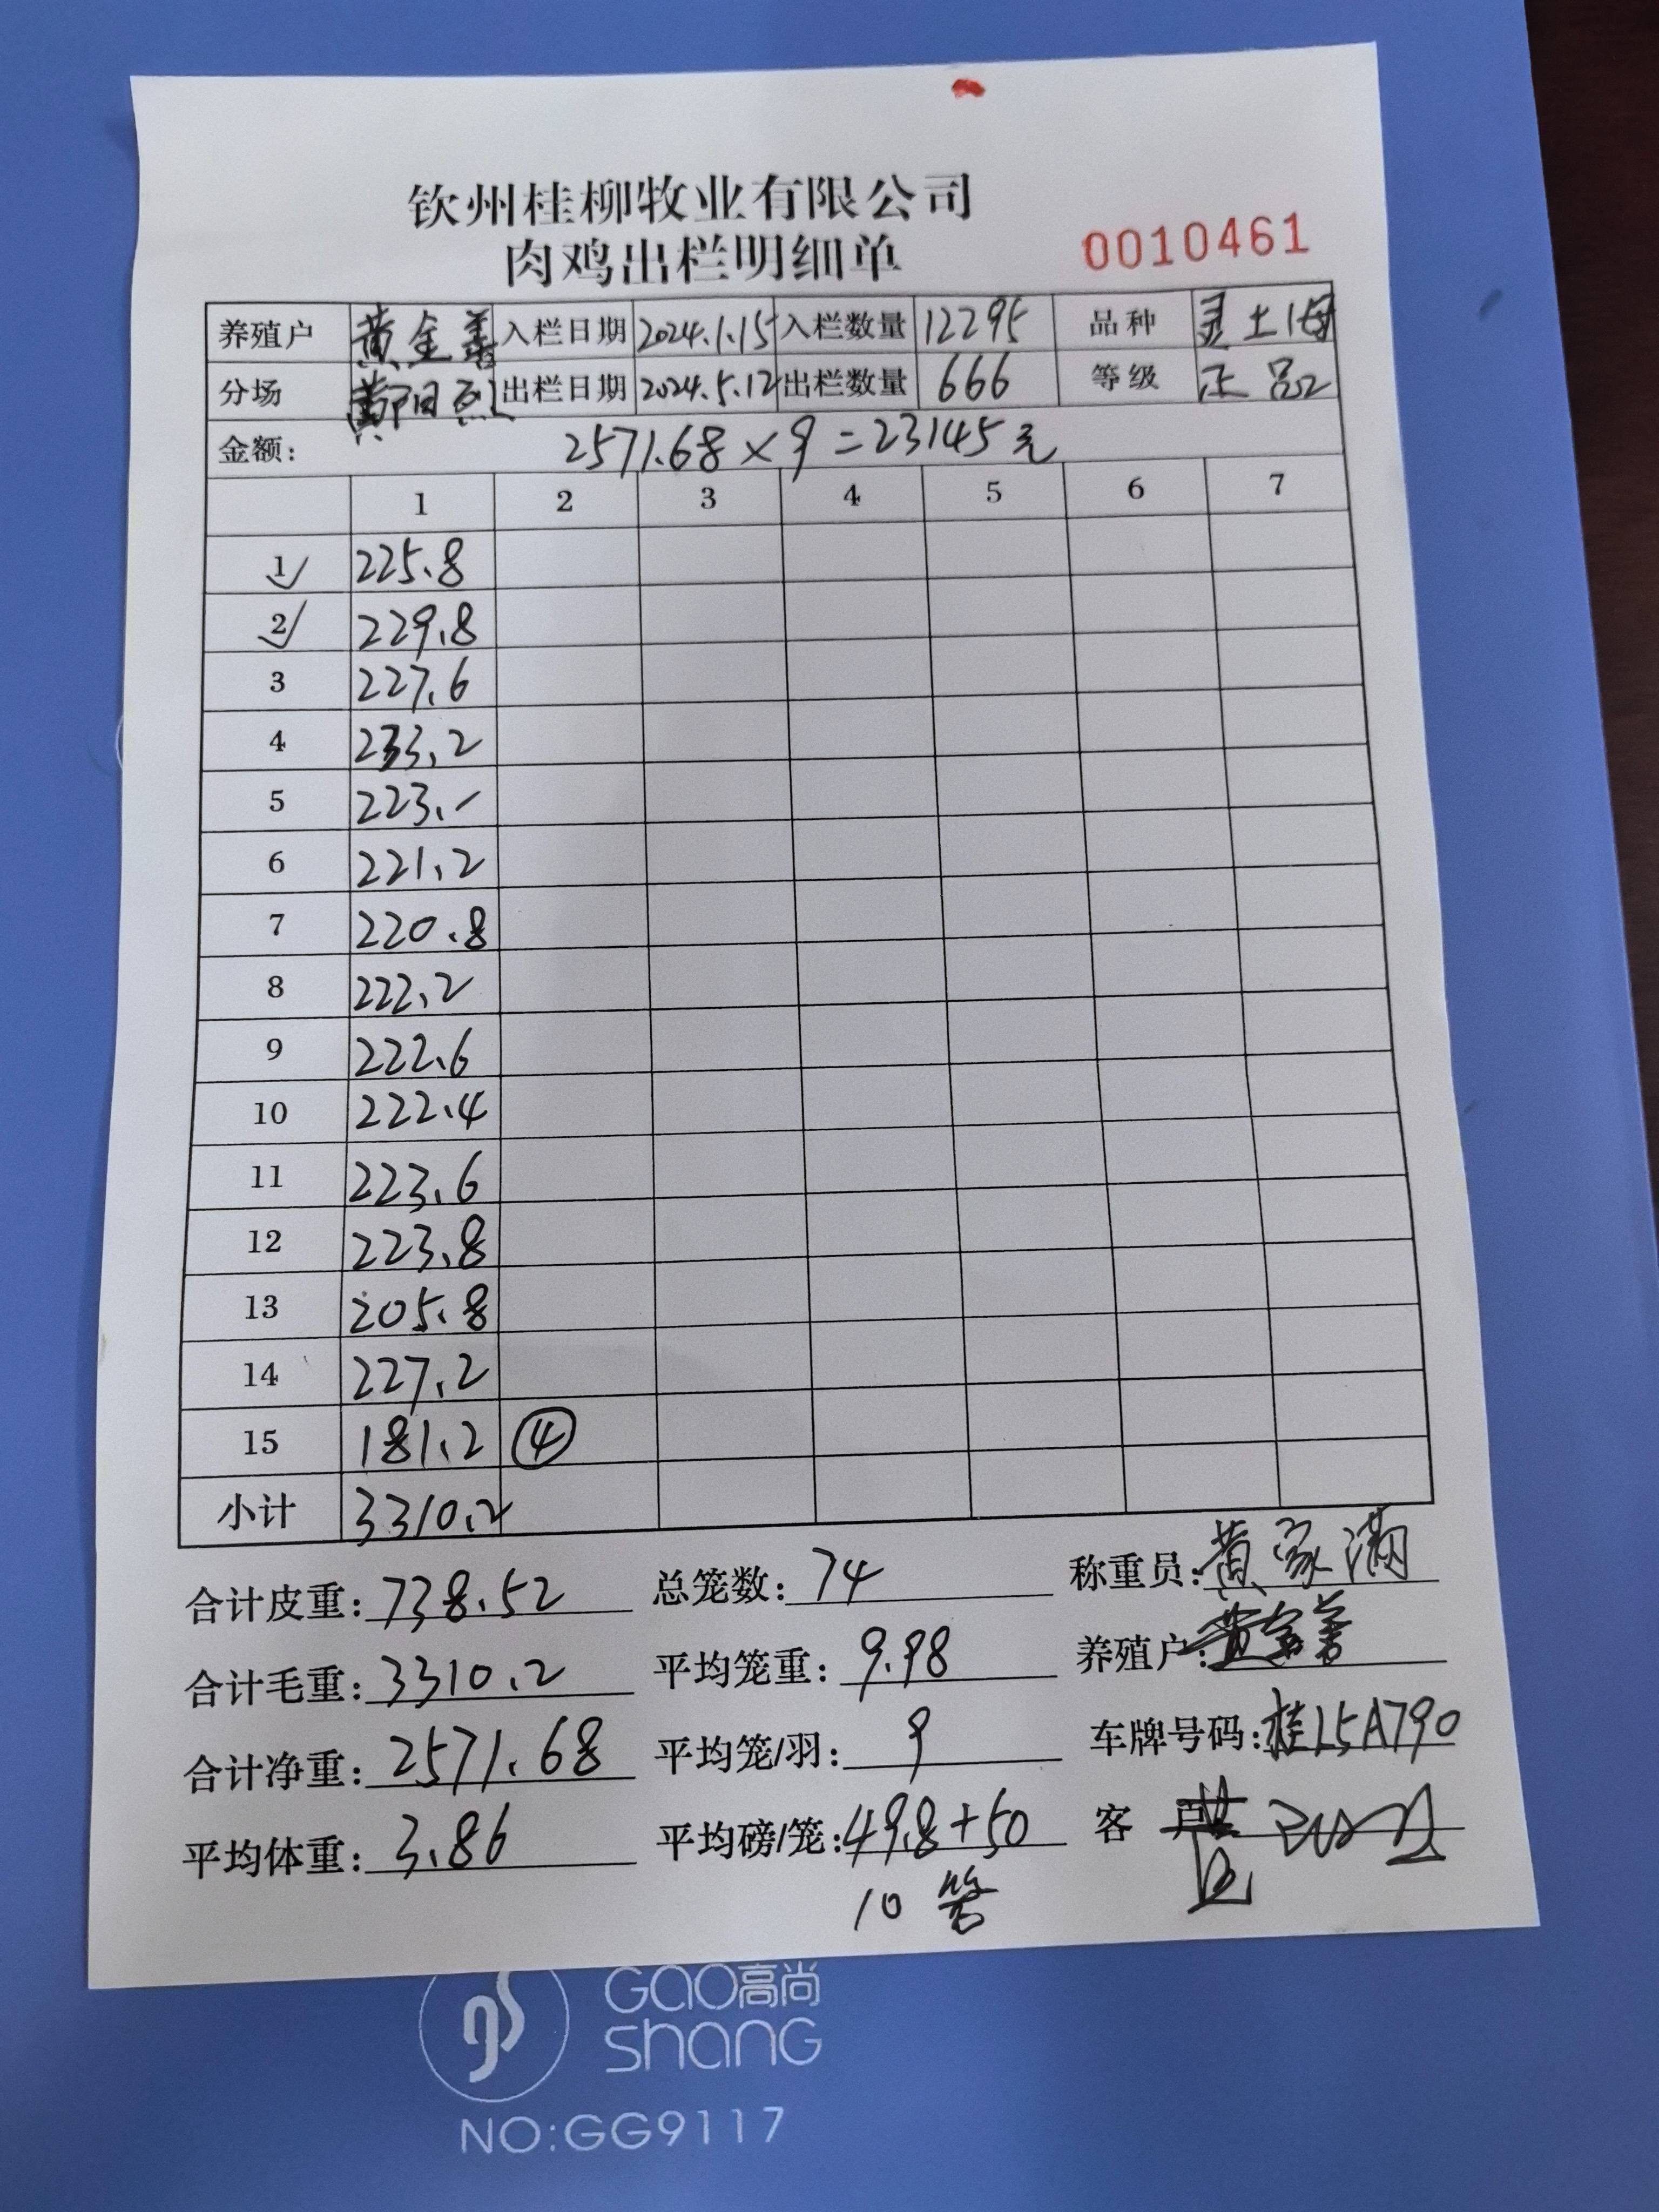 钦州桂柳牧业有限公司
肉鸡出栏明细单 0010461
养殖户 黄金善 入栏日期 2024.1.15 入栏数量 12295 品种 灵土1母
分场 出栏日期 2024.5.12 出栏数量 666 等级 正品
金额: 2571.68×9=23145元
1 2 3 4 5 6 7
1 225.8
2 229.8
3 227.6
4 233.2
5 223.-
6 221.2
7 220.8
8 222.2
9 222.6
10 222.4
11 223.6
12 223.8
13 205.8
14 227.2
15 181.2 ④
小计 3310.2
合计皮重: 738.52 总笼数: 74 称重员: 黄家满
合计毛重: 3310.2 平均笼重: 9.98 养殖户: 黄金善
合计净重: 2571.68 平均笼/羽: 9 车牌号码: 桂L5A790
平均体重: 3.86 平均磅/笼: 49.8+50 客户
10
GAO高尚
shanG
NO:GG9117